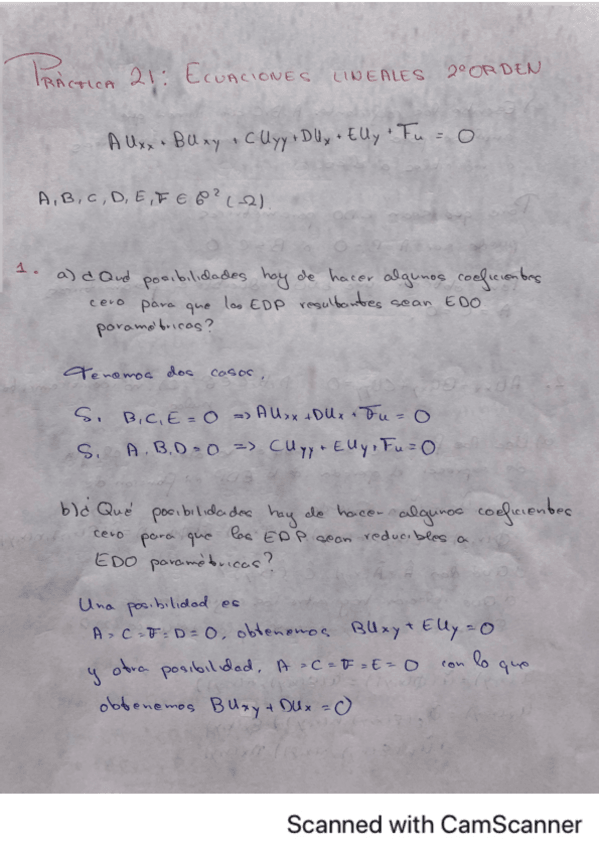 PRÁCTICA 21: ECUACIONES LINEALES 2º ORDEN
AUxx + BUxy + CUyy + DUx + EUy + Fu = 0
A, B, C, D, E, F ∈ C² (Ω)
1. a) ¿Qué posibilidades hay de hacer algunos coeficientes
cero para que las EDP resultantes sean EDO
paramétricas?
Tenemos dos casos,
Si B, C, E = 0 => AUxx + DUx + Fu = 0
Si A, B, D = 0 => CUyy + EUy + Fu = 0
b) ¿Qué posibilidades hay de hacer algunos coeficientes
cero para que las EDP sean reducibles a
EDO paramétricas?
Una posibilidad es
A = C = F = D = 0, obtenemos BUxy + EUy = 0
y otra posibilidad, A = C = F = E = 0 con lo que
obtenemos BUxy + DUx = 0
Scanned with CamScanner